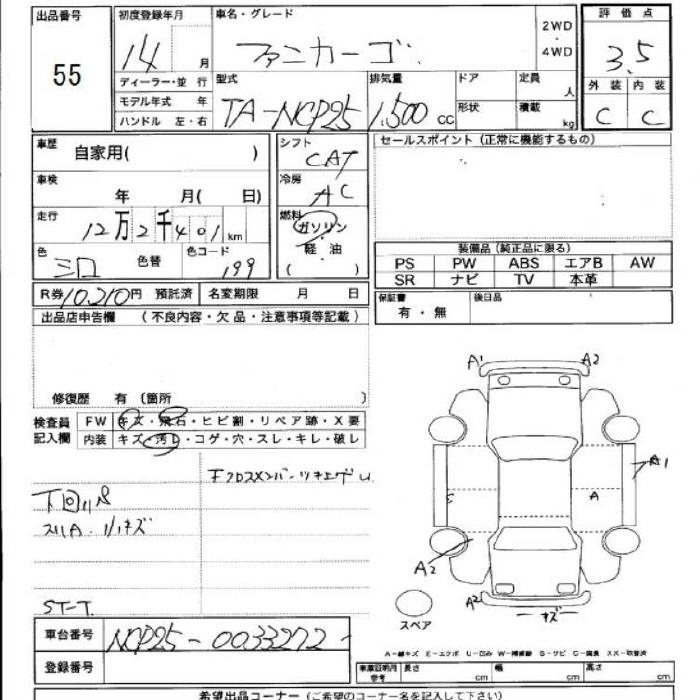 出品番号
55
初度登録年月
14 月
車名・グレード
ファンカーゴ
2WD
・
4WD
評価点
3.5
外装 内装
C C
ディーラー・並行
モデル年式 年
ハンドル 左・右
型式
TA-NCP25
排気量
1,500 CC
ドア
形状
定員
人
積載
kg
車歴
自家用( )
車検
年 月( 日)
走行
12万2千401km
色
シロ
色替
色コード
199
シフト
CAT
冷房
AC
燃料
ガソリン
・
軽油
( )
セールスポイント(正常に機能するもの)
装備品(純正品に限る)
PS PW ABS エアB AW
SR ナビ TV 本革
R券10210円 預託済
名変期限 月 日
保証書
有・無
後日品
出品店申告欄 (不良内容・欠品・注意事項等記載)
修復歴 有 (箇所 )
検査員
記入欄
FW キズ・飛石・ヒビ割・リペア跡・X要
内装 キズ・汚し・コゲ・穴・スレ・キレ・破レ
下回りS
スリA・小キズ
ST-T
A1 A2
A1
S
A
A2
A2
キズ
スペア
A-線キズ E-エクボ U-凹み W-補修跡 S-サビ C-腐食 XX-交換済
車台番号
NCP25-0033272
登録番号
車庫証明用
参考
長さ cm
幅 cm
高さ cm
希望出品コーナー(ご希望のコーナー名を記入して下さい)